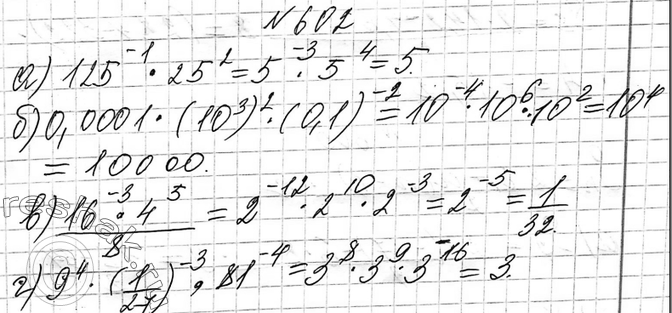 №602
а) 125⁻¹ · 25² = 5⁻³ · 5⁴ = 5.
б) 0,0001 · (10³)² · (0,1)⁻² = 10⁻⁴ · 10⁶ · 10² = 10⁴
= 10000.
в) (16⁻³ · 4⁵)/8 = 2⁻¹² · 2¹⁰ · 2⁻³ = 2⁻⁵ = 1/32.
г) 9⁴ · (1/27)⁻³ · 81⁻⁴ = 3⁸ · 3⁹ · 3⁻¹⁶ = 3.